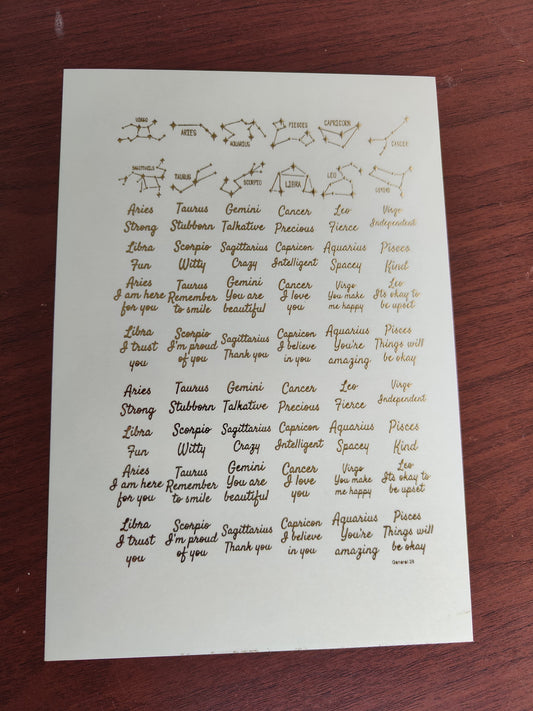 VIRGO ARIES AQUARIUS PIESCES CAPRICORN CANCER
SAGITTARIUS TAURUS SCORPIO LIBRA LEO GEMINI
Aries Taurus Gemini Cancer Leo Virgo
Strong Stubborn Talkative Precious Fierce Independent
Libra Scorpio Sagittarius Capricon Aquarius Pisces
Fun Witty Crazy Intelligent Spacey Kind
Aries Taurus Gemini Cancer Virgo Leo
I am here Remember You are I love You make Its okay to
for you to smile beautiful you me happy be upset
Libra Scorpio Sagittarius Capricon Aquarius Pisces
I trust I'm proud Thank you I believe You're Things will
you of you in you amazing be okay
Aries Taurus Gemini Cancer Leo Virgo
Strong Stubborn Talkative Precious Fierce Independent
Libra Scorpio Sagittarius Capricon Aquarius Pisces
Fun Witty Crazy Intelligent Spacey Kind
Aries Taurus Gemini Cancer Virgo Leo
I am here Remember You are I love You make Its okay to
for you to smile beautiful you me happy be upset
Libra Scorpio Sagittarius Capricon Aquarius Pisces
I trust I'm proud Thank you I believe You're Things will
you of you in you amazing be okay
General 26